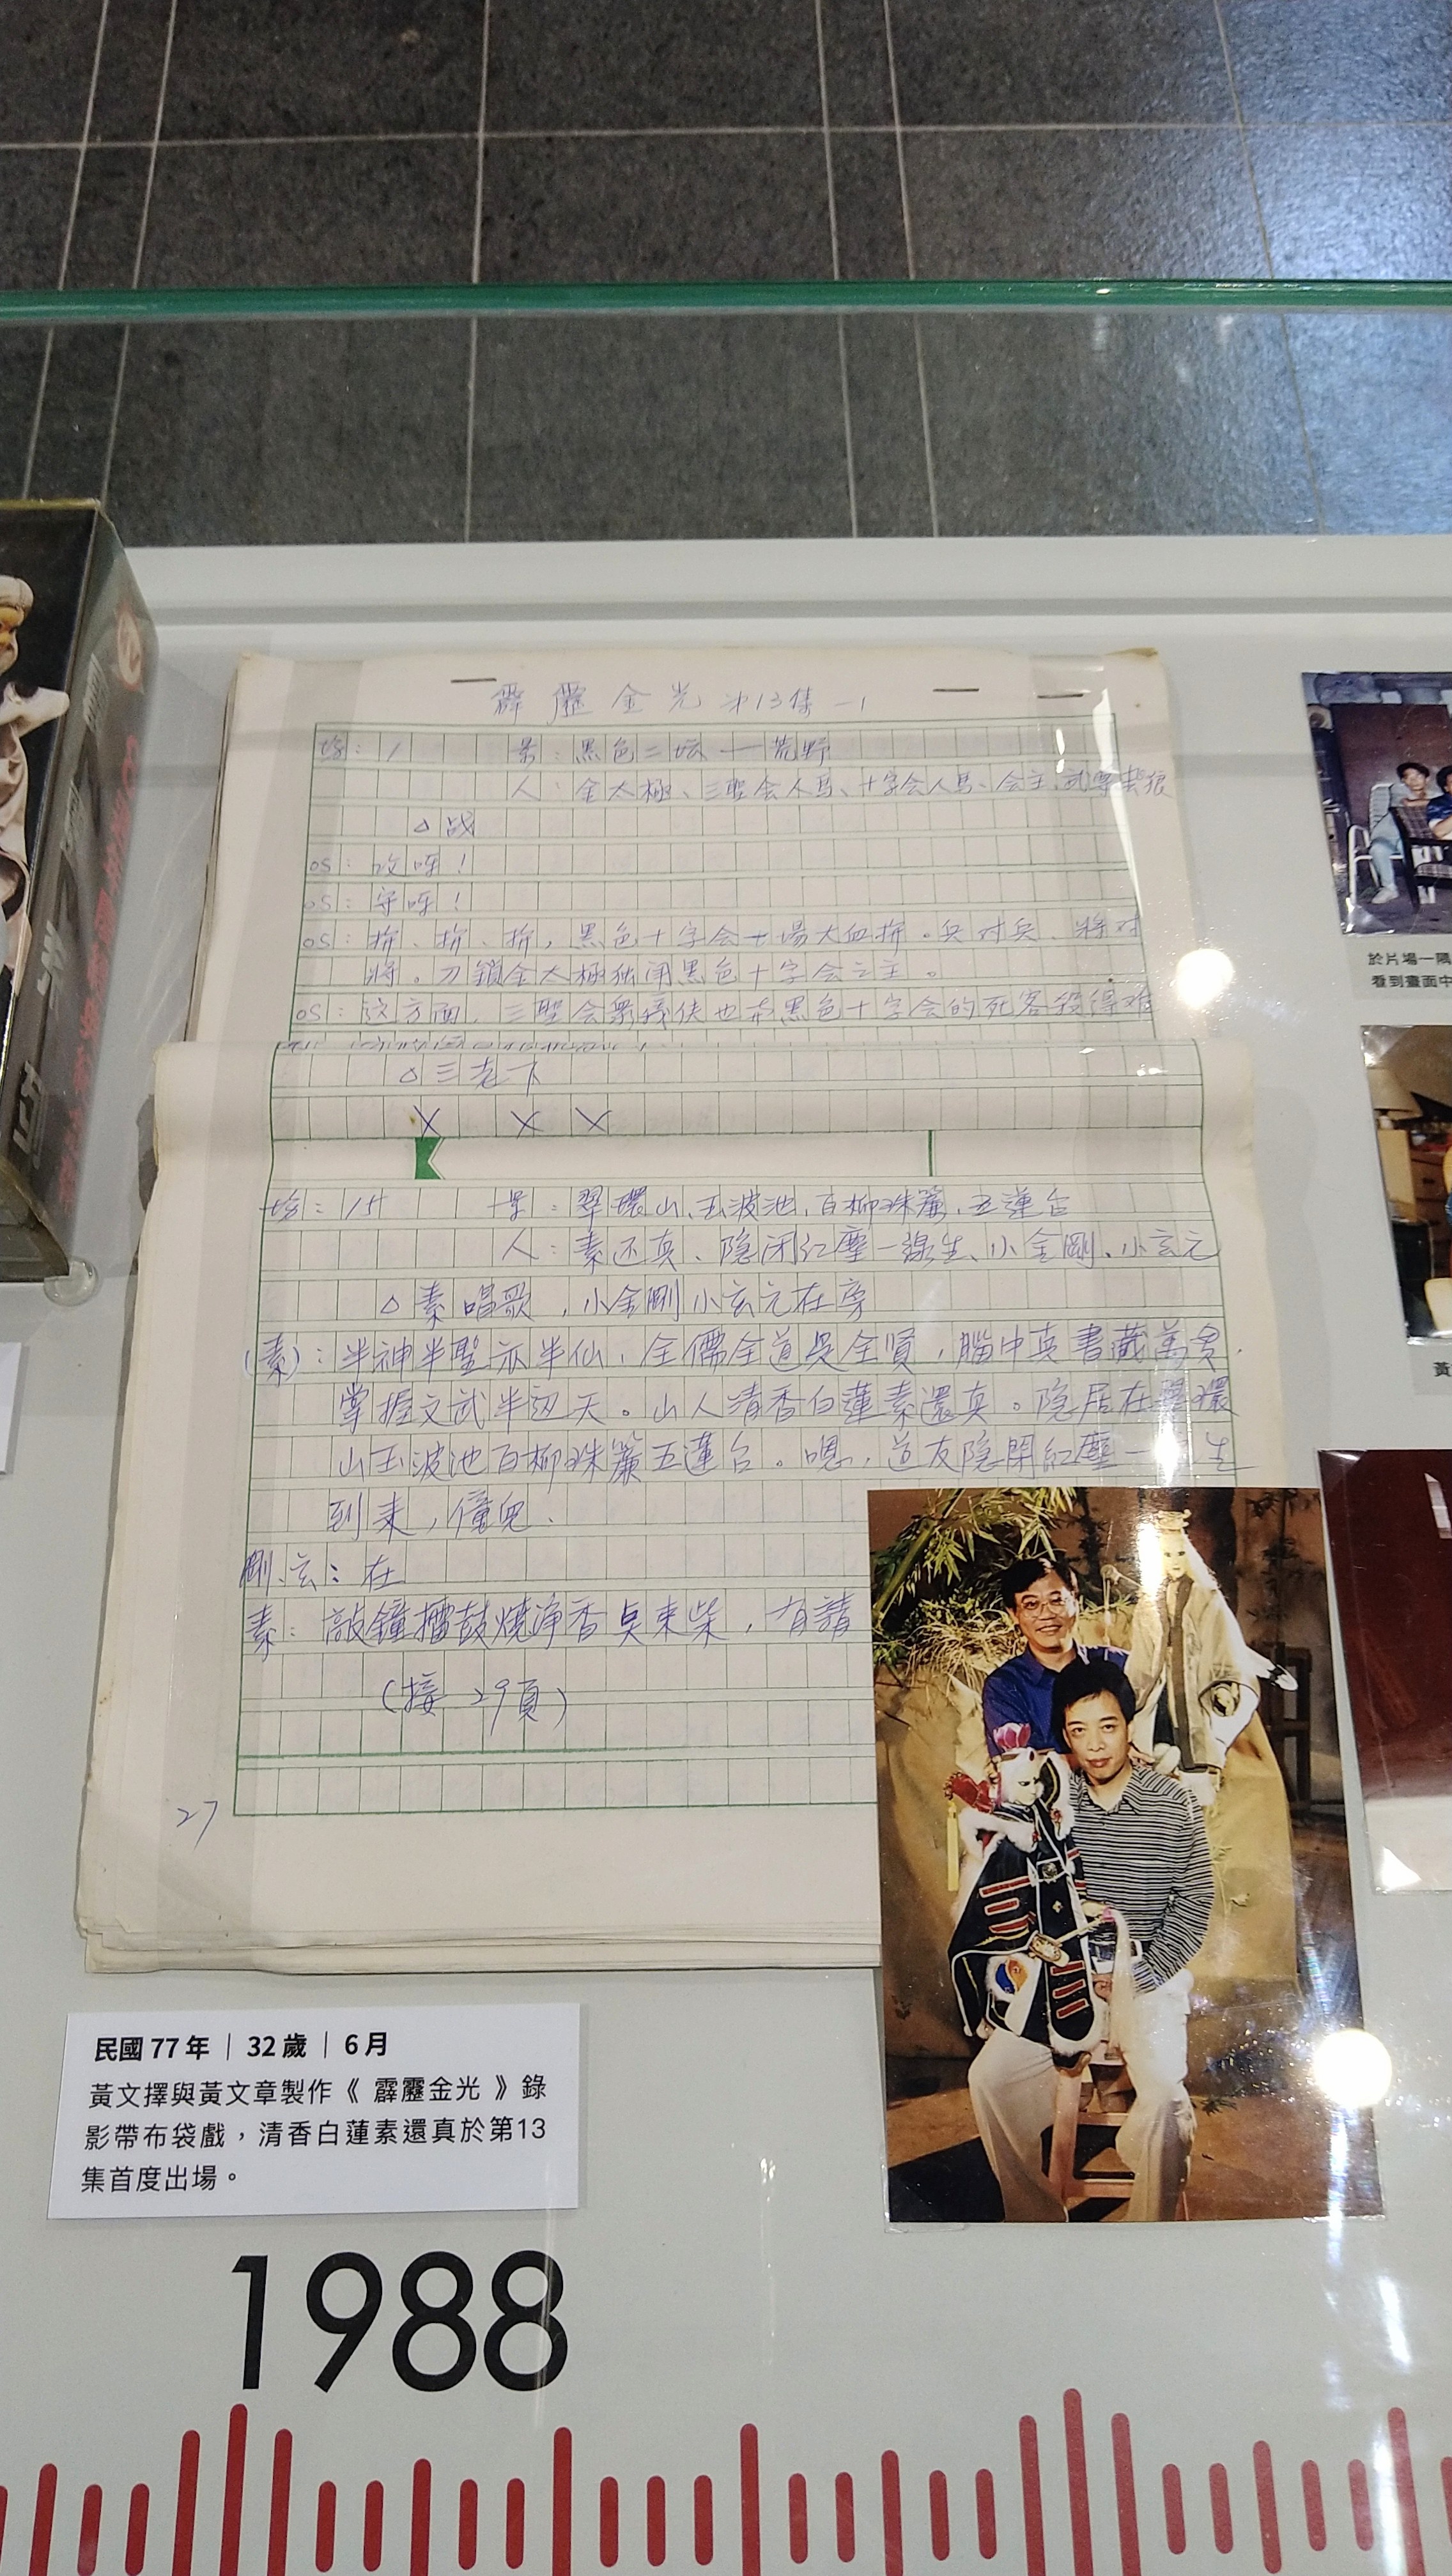 霹靂金光 第13集-1
場：1 景：黑色二坛——荒野
人：金太極、三聖会人馬、十字会人馬、会主、武尊
△战
OS：攻呀！
OS：守呀！
OS：拚、拚、拚，黑色十字会一場大血拚。兵对兵、将对
将。刀鎖金太極独闹黑色十字会之主。
OS：这方面，三聖会衆義俠也and黑色十字会的死客殺得难
△三老下
X X X
場：15 景：翠環山、玉波池、百柳珠簾、五蓮台
人：素还真、隐閉红塵一線生、小金剛、小玄元
△素唱歌，小金剛小玄元在旁
(素)：半神半聖亦半仙，全儒全道是全賢，腦中真書藏萬卷，
掌握文武半边天。山人清香白蓮素還真。隐居在翠環
山玉波池百柳珠簾五蓮台。嗯，道友隐閉紅塵一 生
到来，僮兒．
剛．玄：在
素：敲鐘擂鼓燒淨香 柴，有請
(接 29頁)
27
民國 77 年｜32 歲｜6 月
黃文擇與黃文章製作《 霹靂金光 》錄
影帶布袋戲，清香白蓮素還真於第13
集首度出場。
1988
於片場一隅
看到畫面中
黃